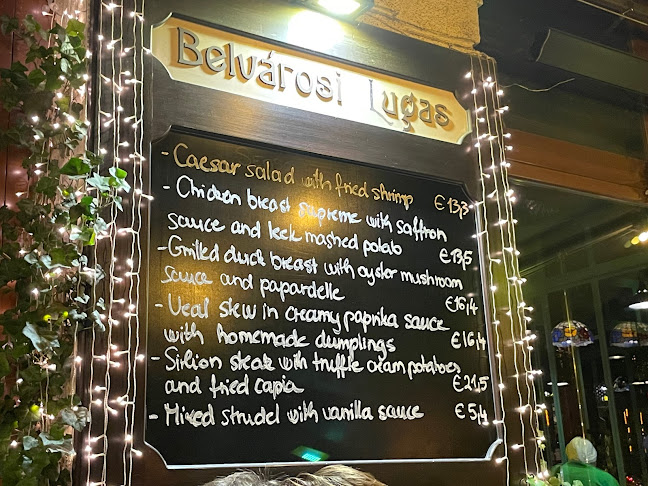 Belvárosi Lugas
- Caesar salad with fried shrimp €13,3
- Chicken breast supreme with saffron
sauce and leek mashed potato €13,5
- Grilled duck breast with oyster mushroom
sauce and papardelle €16,4
- Veal stew in creamy paprika sauce
with homemade dumplings €16,4
- Sirlion steak with truffle cream potatoes
and fried capia €21,5
- Mixed strudel with vanilla sauce €5,4